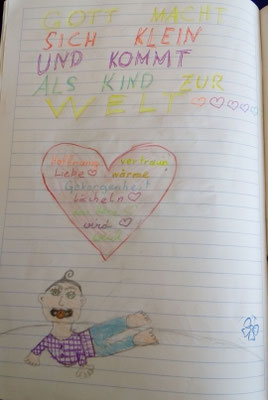 GOTT MACHT
SICH KLEIN
UND KOMMT
ALS KIND ZUR
WELT
Hoffnung vertraun
Liebe wärme
Lächeln
wird